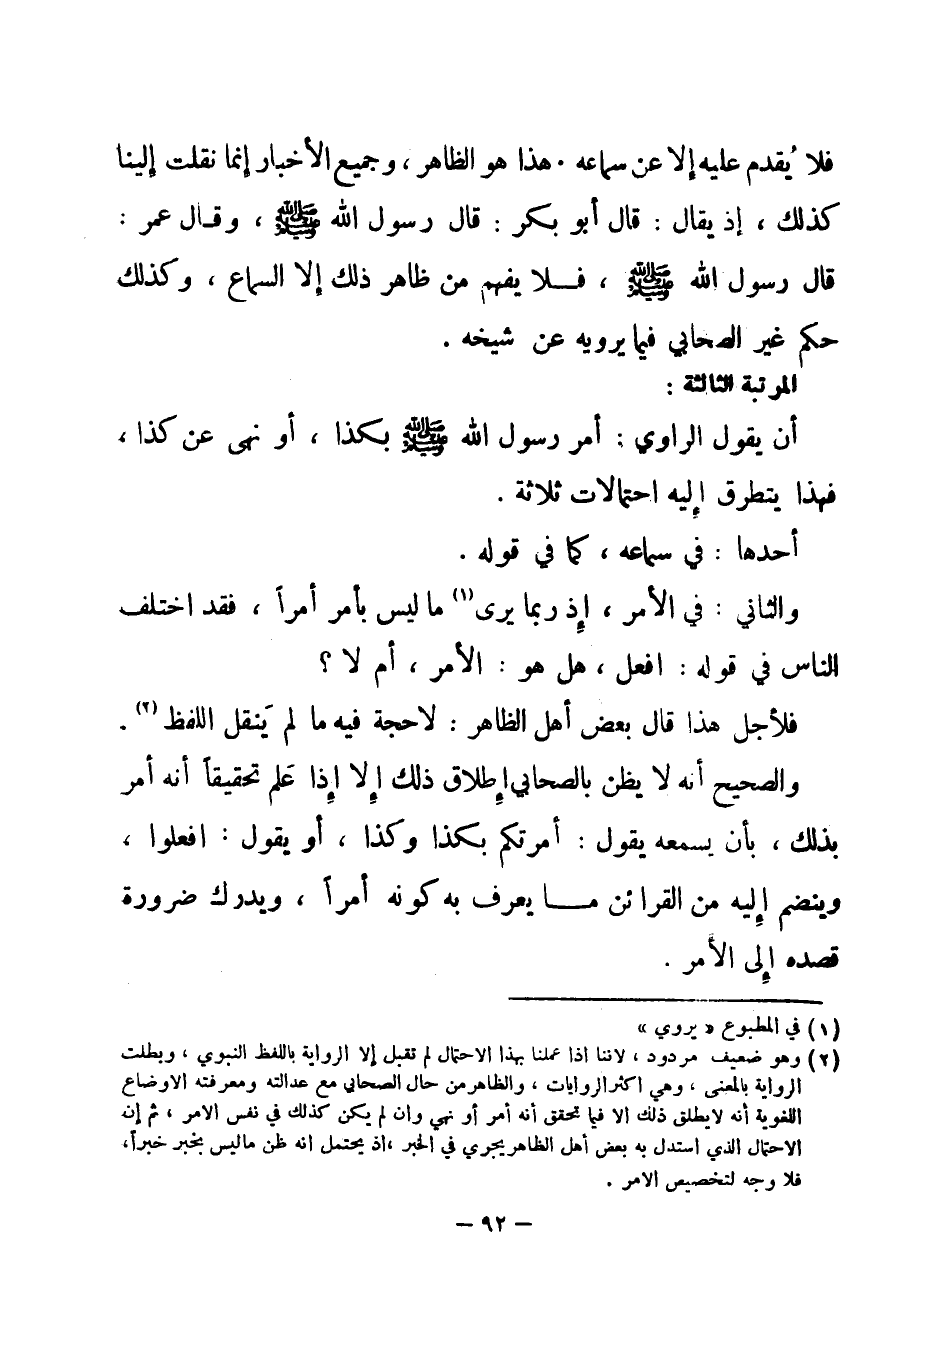 فلا يُقدم عليه إلا عن سماعه . هذا هو الظاهر ، وجميع الأخبار إنما نقلت إلينا
كذلك ، إذ يقال : قال أبو بكر : قال رسول الله ﷺ ، وقال عمر :
قال رسول الله ﷺ ، فلا يفهم من ظاهر ذلك إلا السماع ، وكذلك
حكم غير الصحابي فيما يرويه عن شيخه .
المرتبة الثالثة :
أن يقول الراوي : أمر رسول الله ﷺ بكذا ، أو نهى عن كذا ،
فهذا يتطرق إليه احتمالات ثلاثة .
أحدها : في سماعه ، كما في قوله .
والثاني : في الأمر ، إذ ربما يرى(١) ما ليس بأمر أمراً ، فقد اختلف
الناس في قوله : افعل ، هل هو : الأمر ، أم لا ؟
فلأجل هذا قال بعض أهل الظاهر : لا حجة فيه ما لم يَنقل اللفظ(٢) .
والصحيح أنه لا يظن بالصحابي إطلاق ذلك إلا إذا عَلم تحقيقاً أنه أمر
بذلك ، بأن يسمعه يقول : أمرتكم بكذا وكذا ، أو يقول : افعلوا ،
وينضم إليه من القرائن مـا يعرف به كونه أمراً ، ويدرك ضرورة
قصده إلى الأمر .
(١) في المطبوع « يروي »
(٢) وهو ضعيف مردود ، لاننا اذا عملنا بهذا الاحتمال لم تقبل إلا الرواية باللفظ النبوي ، وبطلت
الرواية بالمعنى ، وهي اكثر الروايات ، والظاهر من حال الصحابي مع عدالته ومعرفته الاوضاع
اللغوية أنه لايطلق ذلك الا فيما تحقق أنه أمر أو نهي وان لم يكن كذلك في نفس الامر ، ثم إن
الاحتمال الذي استدل به بعض أهل الظاهر يجري في الخبر ،اذ يحتمل انه ظن ماليس بخبر خبراً،
فلا وجه لتخصيص الامر .
— ٩٢ —